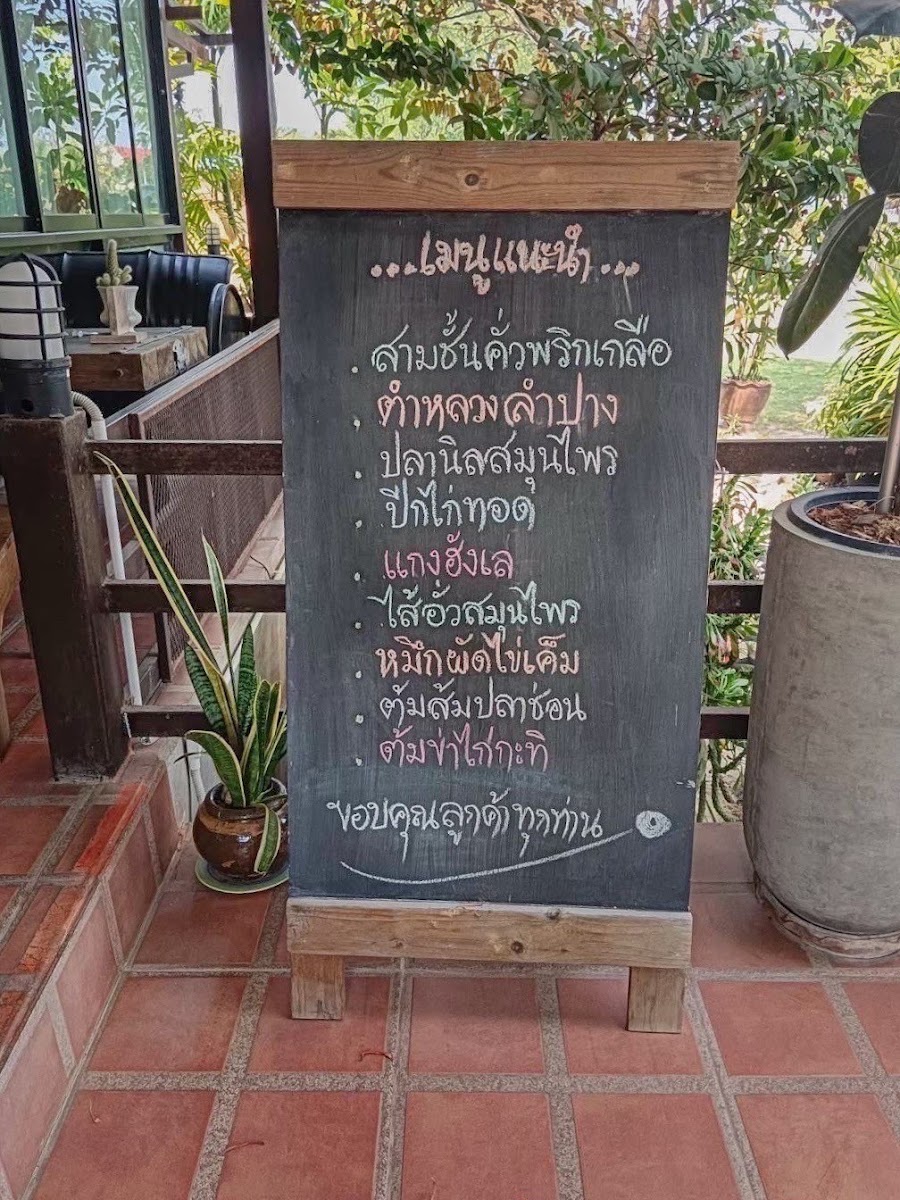 ...เมนูแนะนำ...
. สามชั้นคั่วพริกเกลือ
. ตำหลวงลำปาง
. ปลานิลสมุนไพร
. ปีกไก่ทอด
. แกงฮังเล
. ไส้อั่วสมุนไพร
. หมึกผัดไข่เค็ม
. ต้มส้มปลาช่อน
. ต้มข่าไก่กะทิ
ขอบคุณลูกค้าทุกท่าน